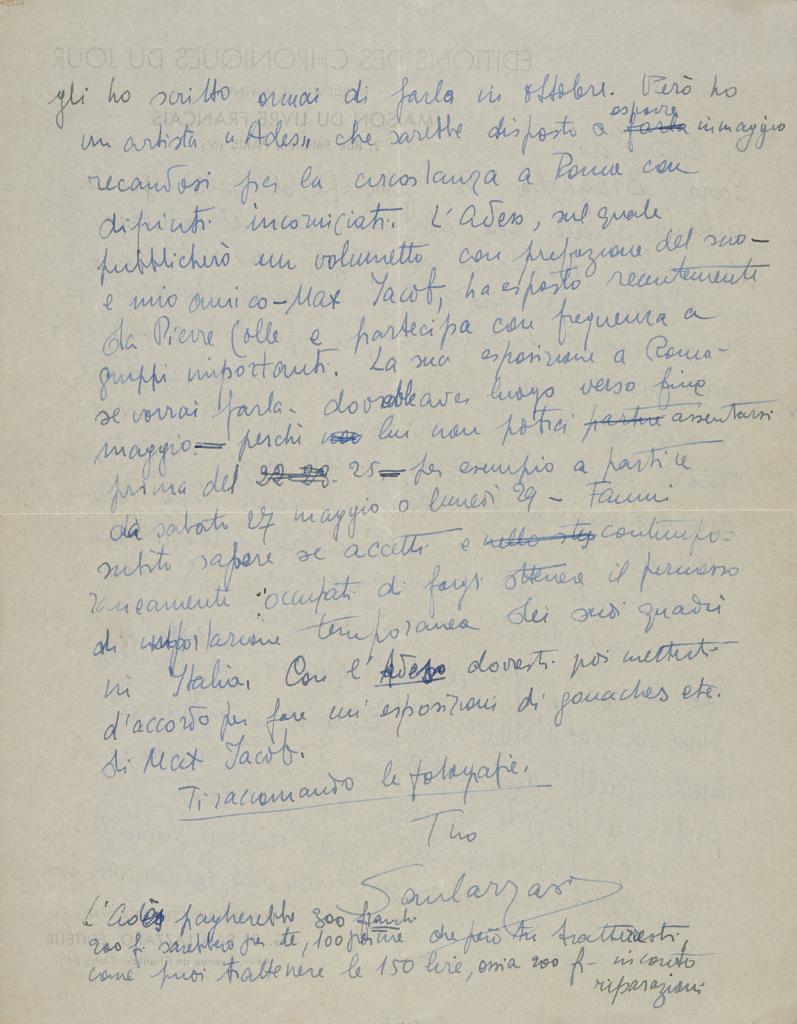 gli ho scritto ormai di farla in ottobre. Però ho
un artista "Ades" che sarebbe disposto a farla esporre in maggio
recandosi per la circostanza a Roma con
dipinti incorniciati. L'Adess, sul quale
pubblicherò un volumetto con prefazione del suo —
e mio amico — Max Jacob, ha esposto recentemente
da Pierre Colle e partecipa con frequenza a
gruppi importanti. La sua esposizione a Roma —
se vorrai farla — dovrebbe aver luogo verso fine
maggio — perchè lui non potrà partire assentarsi
prima del 22-23 - 25 — per esempio a partire
da sabato 27 maggio o lunedì 29 — Fammi
subito sapere se accetti e nello stes contempo=
raneamente occupati di fargli ottenere il permesso
di importazione temporanea dei suoi quadri
in Italia. Con l' Adess dovresti poi metterti
d'accordo per fare un'esposizione di gouaches etc.
di Max Jacob.
Ti raccomando le fotografie.
Tuo
San Lazzaro
L'Adès pagherebbe 300 franchi
200 f. sarebbero per te, 100 per me che però tu tratterresti,
come puoi trattenere le 150 lire, ossia 200 f. in conto
riparazioni